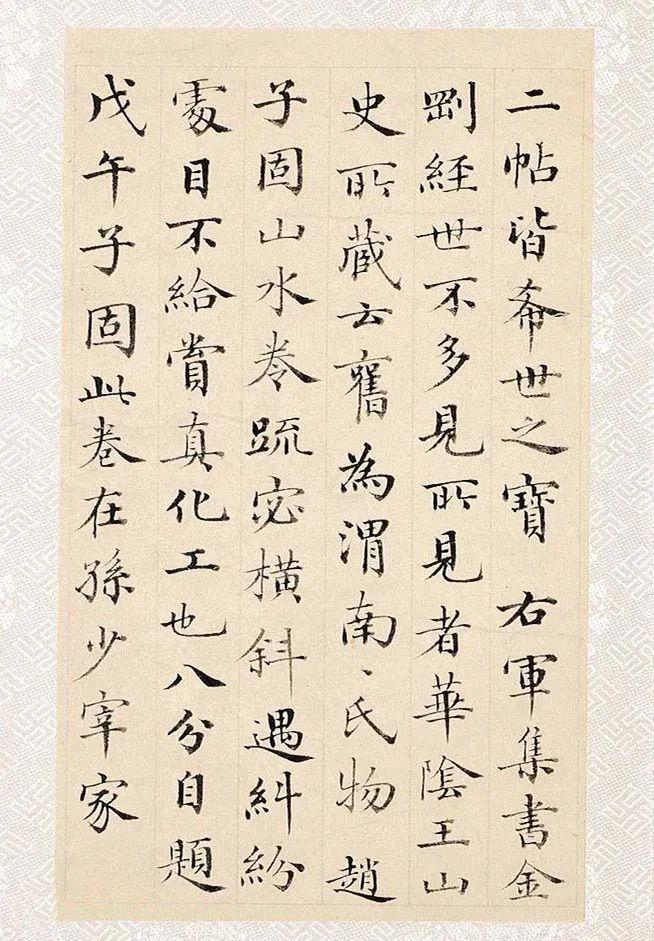 二帖皆希世之寶　右軍集書金
剛經世不多見所見者華陰王山
史所藏云舊為渭南〻氏物　趙
子固山水卷疏宓橫斜遇糾紛
處目不給賞真化工也八分自題
戊午子固此卷在孫少宰家